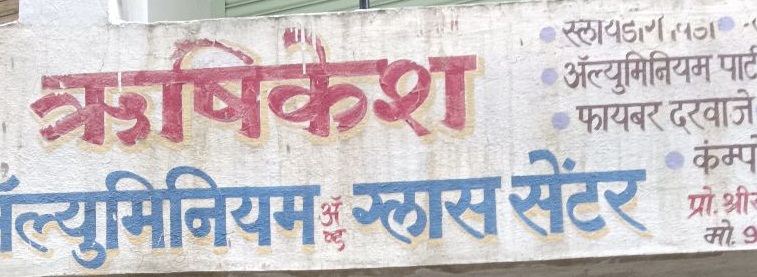 ऋषिकेश
ॲल्युमिनियम ॲण्ड ग्लास सेंटर
स्लायडींग
ॲल्युमिनियम
फायबर दरवाजे
प्रो.
मो. 9